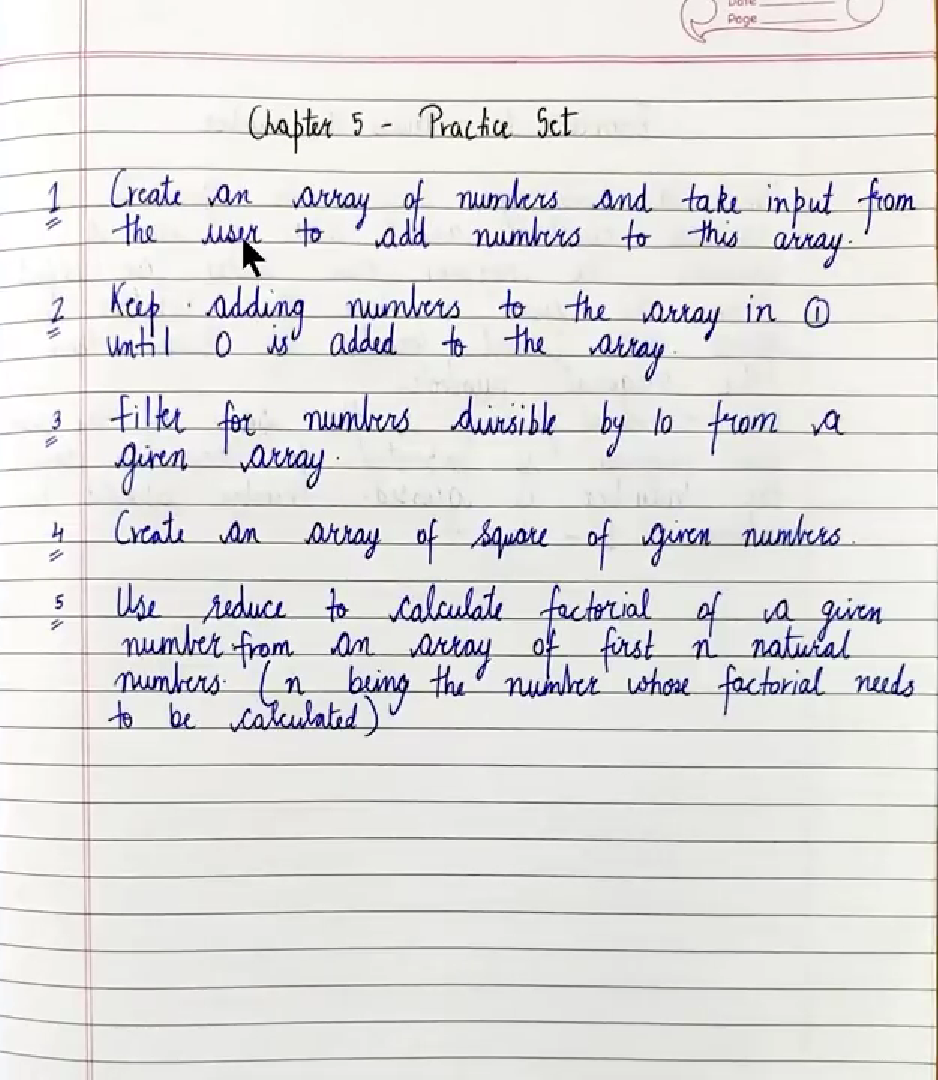 Date
Page
Chapter 5 - Practice Set
1 Create an array of numbers and take input from
the user to add numbers to this array.
2 Keep adding numbers to the array in ①
until 0 is added to the array.
3 Filter for numbers divisible by 10 from a
given array.
4 Create an array of square of given numbers.
5 Use reduce to calculate factorial of a given
number from an array of first n natural
numbers. (n being the number whose factorial needs
to be calculated)